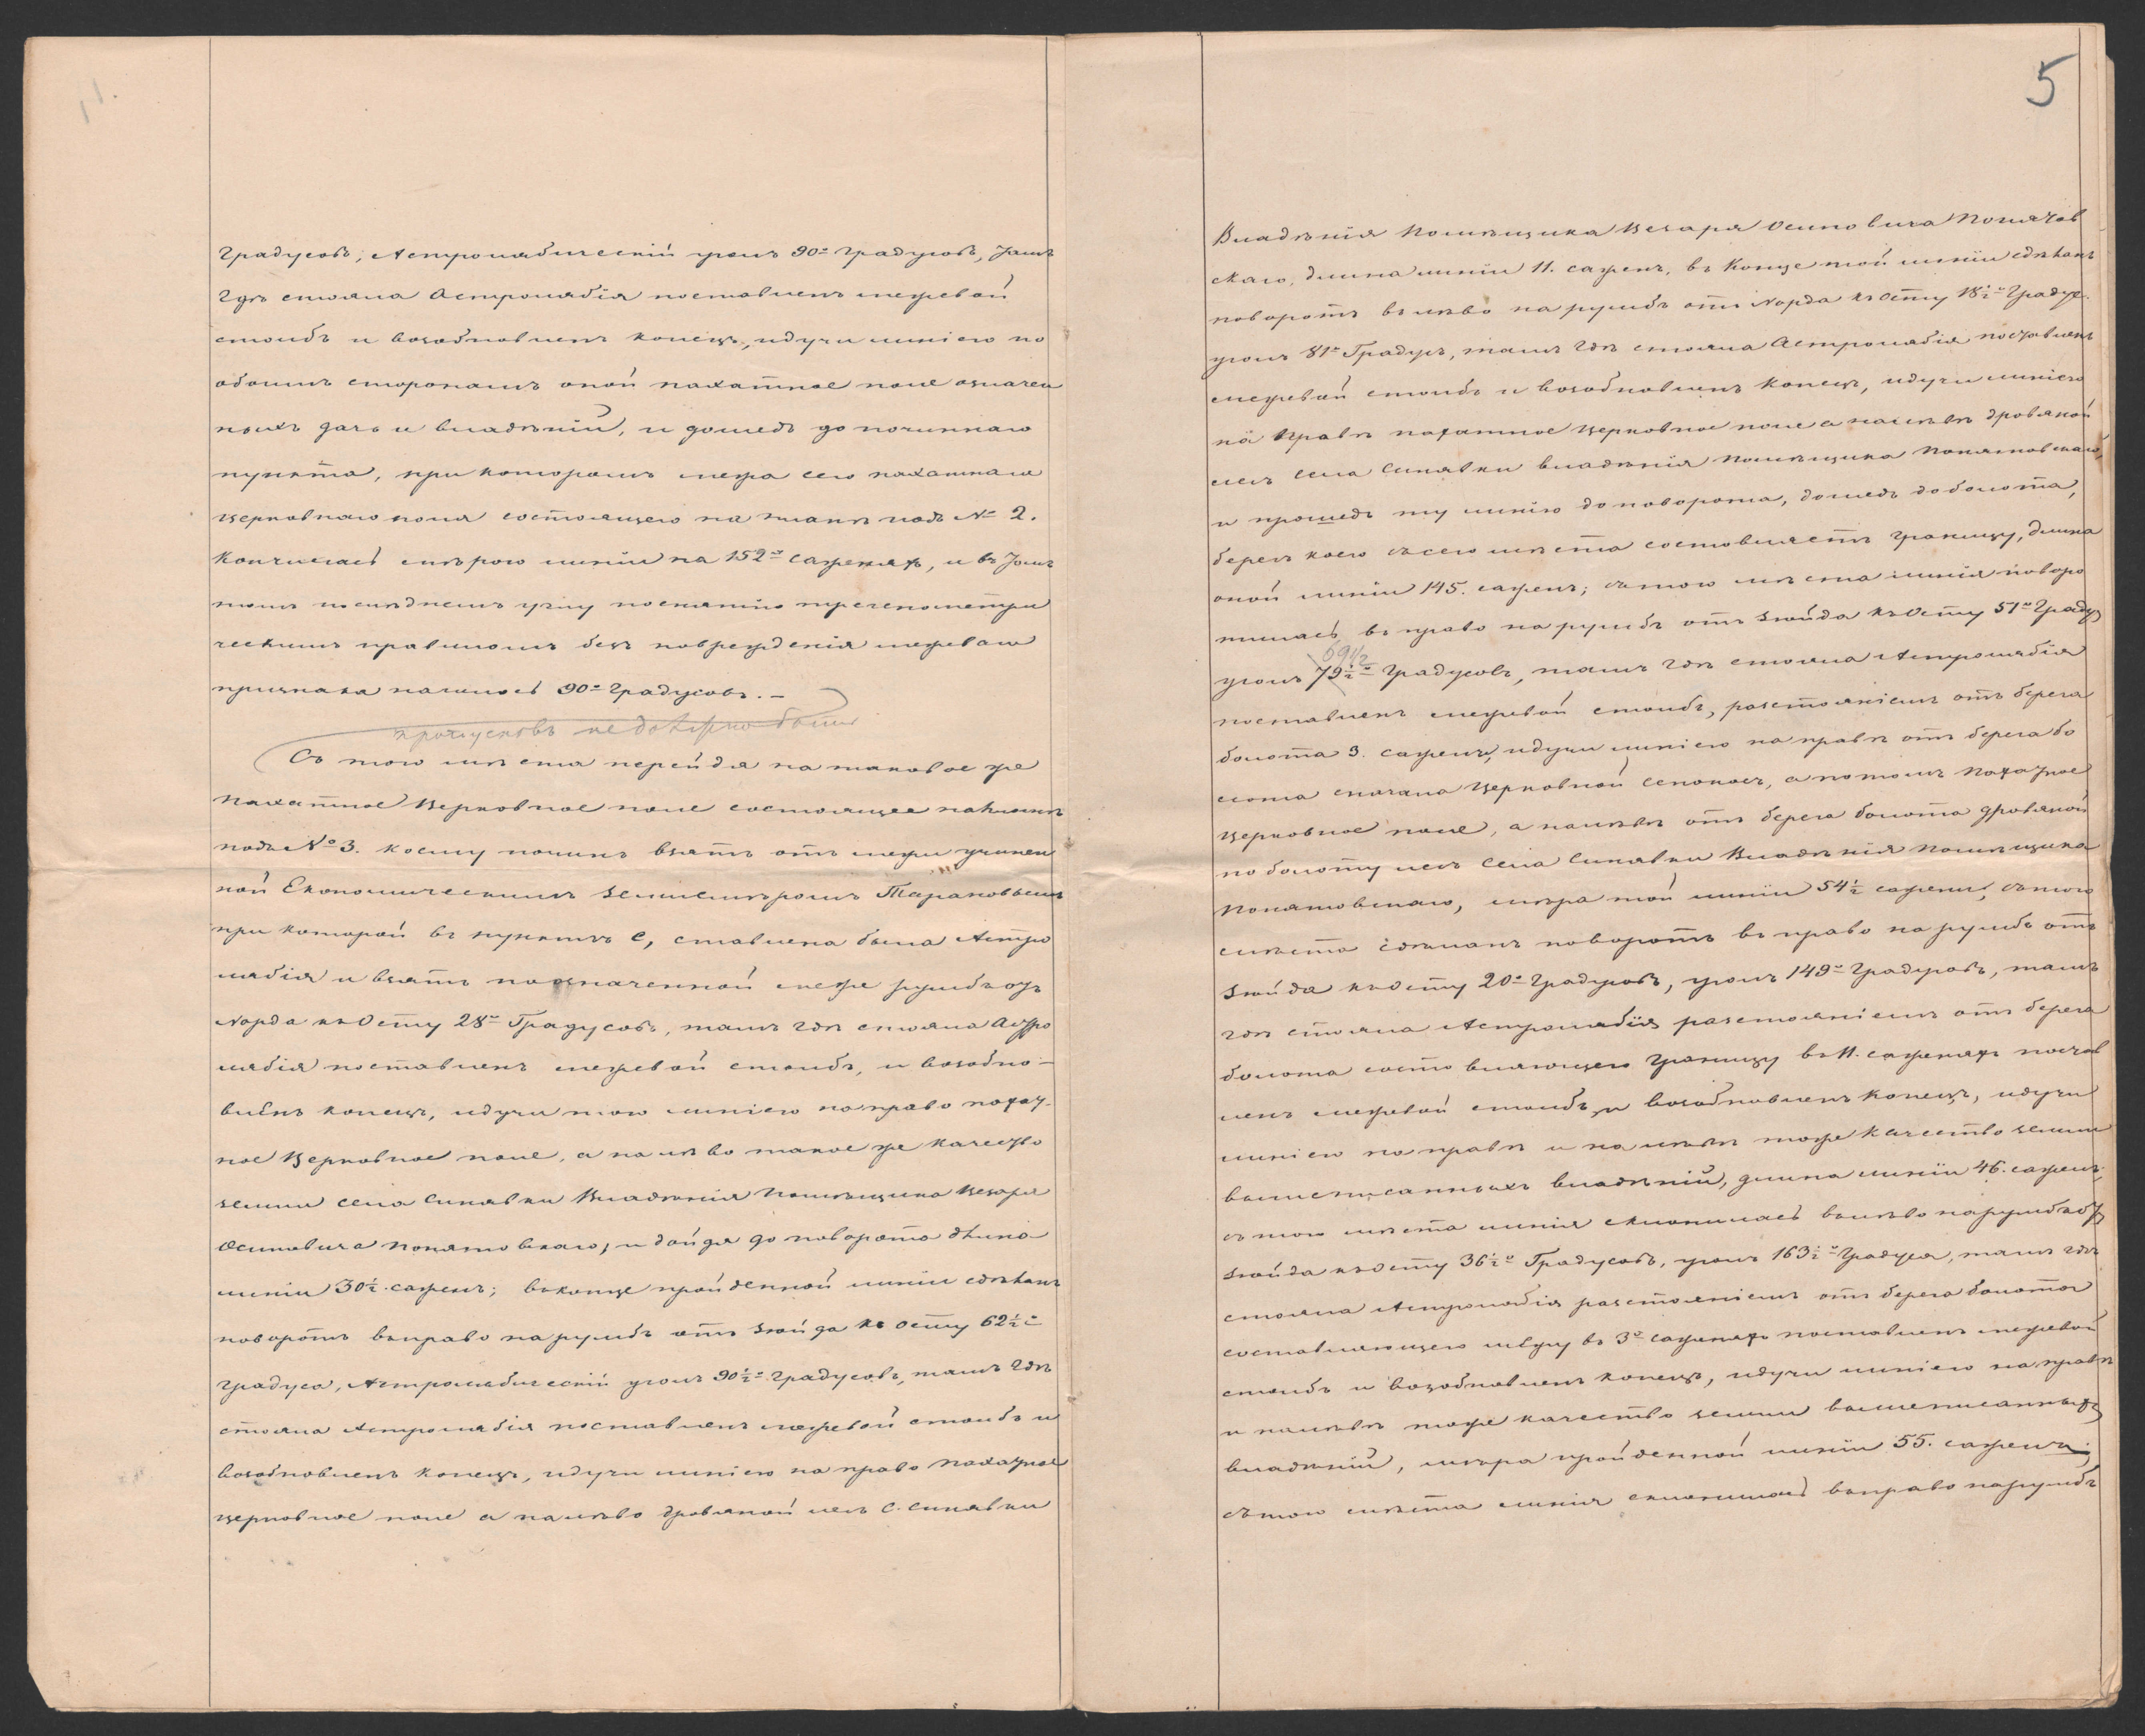 градусовъ, Астролябическій уголъ 90° градусовъ, тамъ
гдѣ стояла Астролябія поставленъ межевой
столбъ и возобновленъ конецъ, идучи линіею по
обоимъ сторонамъ оной пахатное поле означен
ныхъ дачъ и владѣній, и дошедъ до починнаго
пункта, при которомъ межа сего пахатнаго
церковнаго поля состоящего на планѣ подъ № 2.
кончилась мѣрою линіи на 152° саженяхъ, и въ томъ
томъ послѣднемъ углу поснятію тречепометри
ческимъ правиломъ безъ поврежденія межеваго
признака нашлось 90° градусовъ. —
пропусковъ не должно быть
Съ того мѣста перейдя на таковое же
пахатное церковное поле состоящее на планѣ
подъ № 3. коему починъ взятъ отъ межи учинен
ной Економическимъ землемѣромъ Тарановымъ
при которой въ пунктѣ С, ставлена была Астро
лябія и взятъ по означенной межѣ румбъ отъ
Норда къ Осту 28° Градусовъ, тамъ гдѣ стояла Астро
лябія поставленъ межевой столбъ, и возобно-
вленъ конецъ, идучи тою линіею по право пахат-
ное церковное поле, а на лѣво такое же качество
земли села Синявки владѣнія помѣщика Цезаря
Осиповича Понятовскаго, и дойдя до поворота длина
линіи 30½ саженъ; въ конце пройденной линіи сдѣланъ
поворотъ въ право на румбъ отъ Зюйда къ Осту 62½°
градуса, Астролябическій уголъ 90½° градусовъ, тамъ гдѣ
стояла Астролябія поставленъ межевой столбъ и
возобновленъ конецъ, идучи линіею на право пахатное
церковное поле а на лѣво дровяной лесъ с. Синявки
5
Владѣнія Помѣщика Цезаря Осиповича Понятов
скаго, длина линіи 11. саженъ, въ конце той линіи сдѣланъ
поворотъ въ лѣво на румбъ отъ Норда къ Осту 18½° Градус.
уголъ 81° Градусъ, тамъ гдѣ стояла Астролябія поставленъ
межевой столбъ и возобновленъ конецъ, идучи линіею
на правѣ пахатное церковное поле а на лѣвѣ дровяной
лесъ села Синявки владѣнія помѣщика Понятовскаго,
и прошедъ ту линію до поворота, дошедъ до болота,
берегъ коего съ сего мѣста составляетъ границу, длина
оной линіи 145. саженъ; съ того мѣста линія поворо
тилась въ право на румбъ отъ Зюйда къ Осту 51° Граду
69½
уголъ 79½° градусовъ, тамъ гдѣ стояла Астролябія
поставленъ межевой столбъ, разстояніемъ отъ берега
болота 3. сажени, идучи линіею на правѣ отъ берега бо
лота сначала церковной сенокосъ, а потомъ пахатное
церковное поле, а на лѣвѣ отъ берега болота дровяной
по болоту лесъ села Синявки владѣнія помѣщика
Понятовскаго, мѣра той линіи 54½ сажени, съ того
мѣста сдѣланъ поворотъ въ право на румбъ отъ
Зюйда къ Осту 20° Градусовъ, уголъ 149° Градусовъ, тамъ
гдѣ стояла Астролябія разстояніемъ отъ берега
болота составляющего границу въ 11. саженяхъ постав
ленъ межевой столбъ и возобновленъ конецъ, идучи
линіею на правѣ и на лѣвѣ тоже качество земли
вышеписанныхъ владѣній, длина линіи 46. саженъ
съ того мѣста линія склонилась въ лѣво на румбъ отъ
Зюйда къ Осту 36½° Градусовъ, уголъ 163½° Градуса, тамъ гдѣ
стояла Астролябія разстояніемъ отъ берега болота
составляющего между въ 3° саженяхъ поставленъ межевой
столбъ и возобновленъ конецъ, идучи линіею на правѣ
и на лѣвѣ тоже качество земли вышеписанныхъ
владѣній, мѣра пройденной линіи 55. саженъ;
съ того мѣста линія склонилась въ право на румбъ